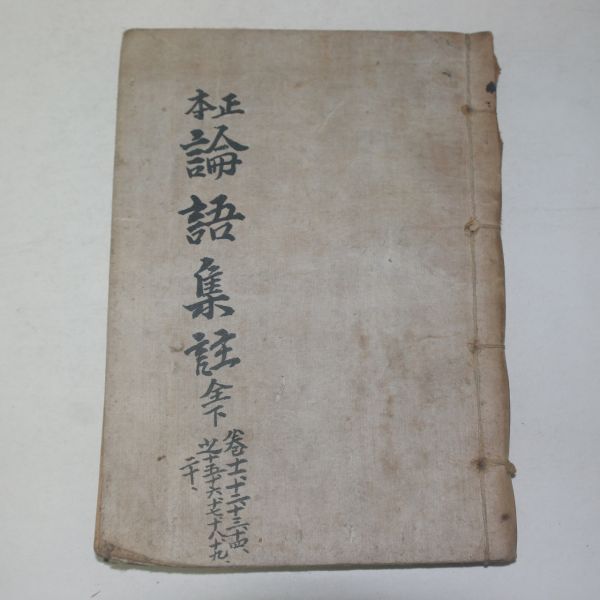 正本
論語集註
全下
卷十一、十二十三十四、
十五十六十七十八十九、
二十、